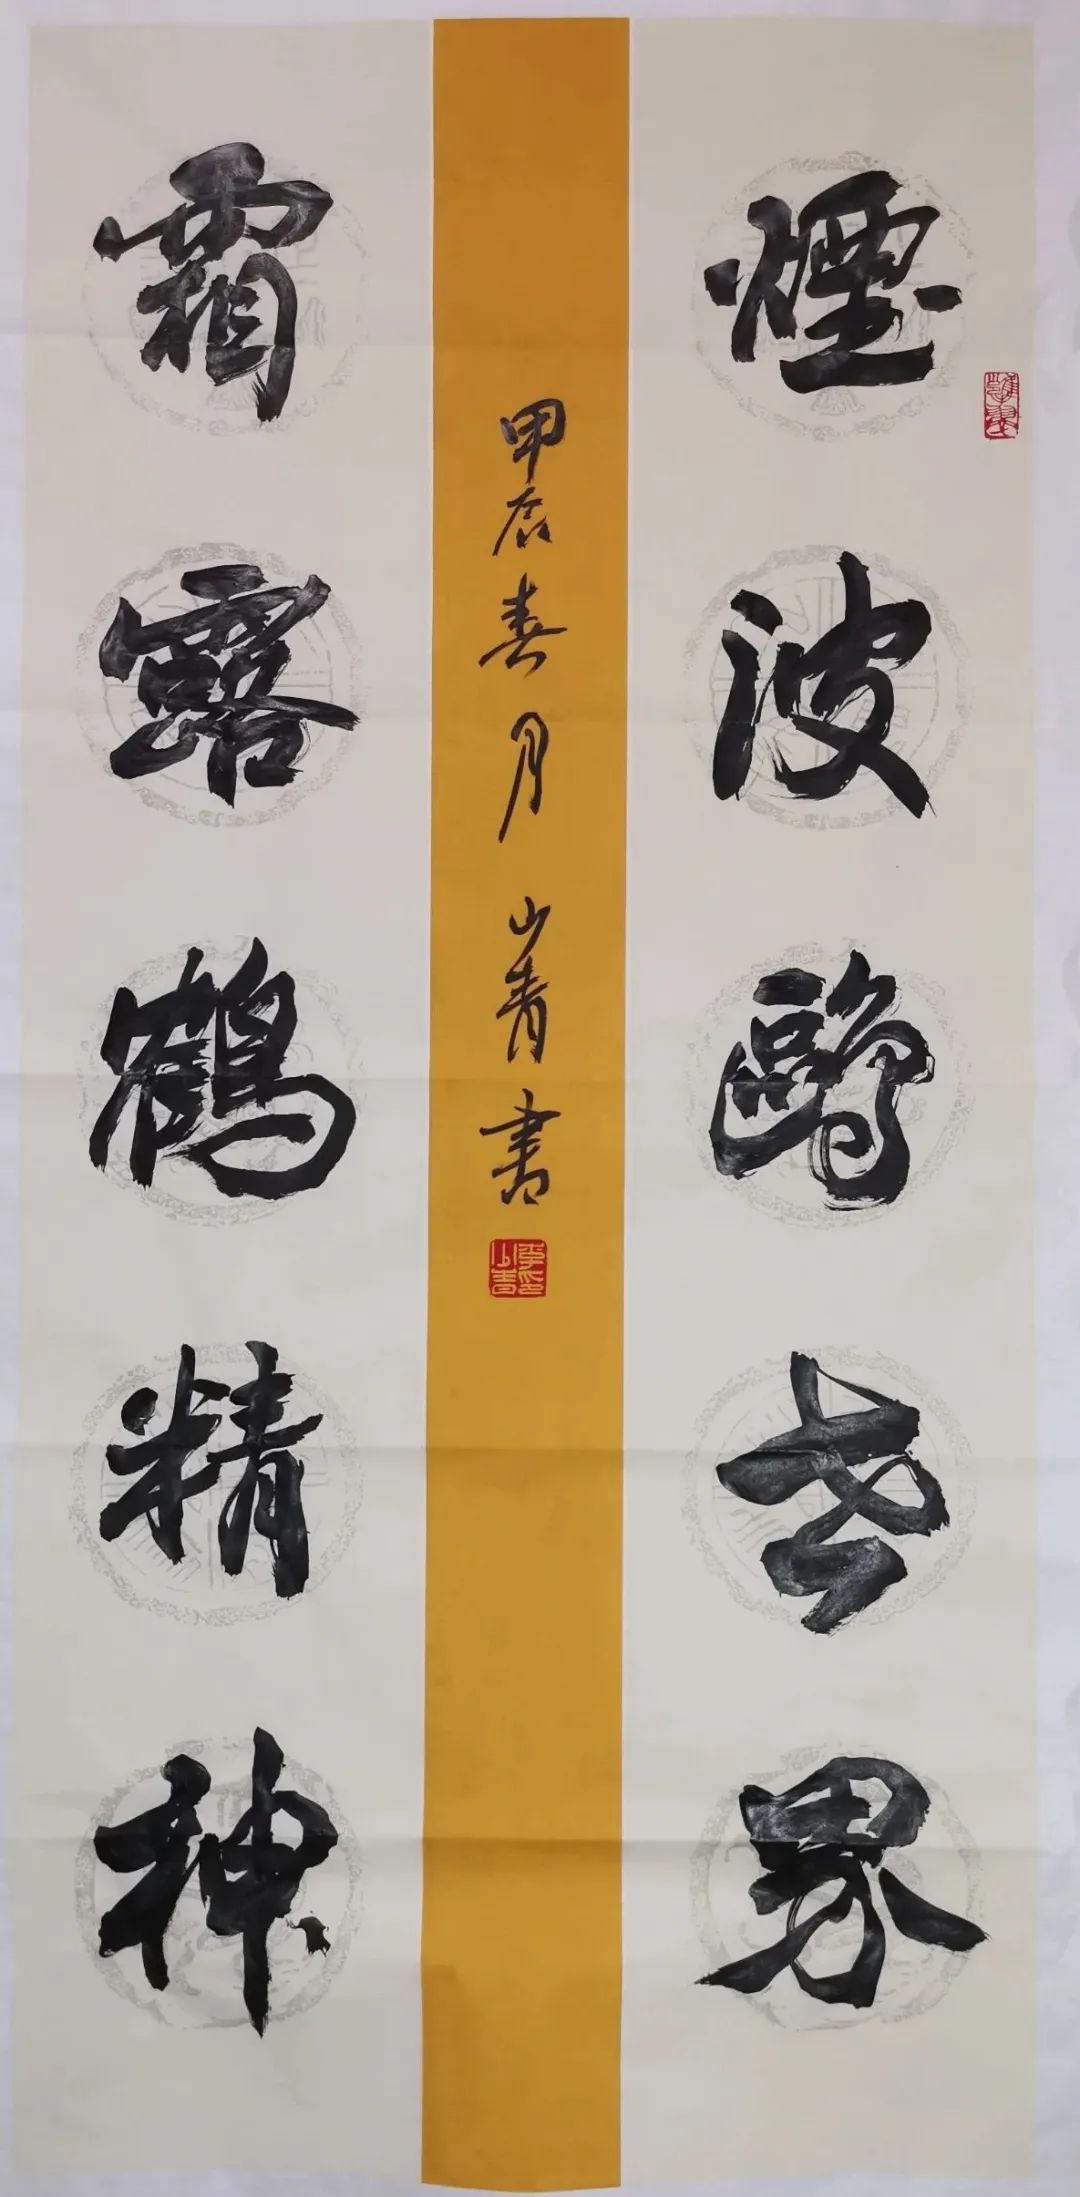 煙波鷗世界
霜露鶴精神
甲辰春月 山青書